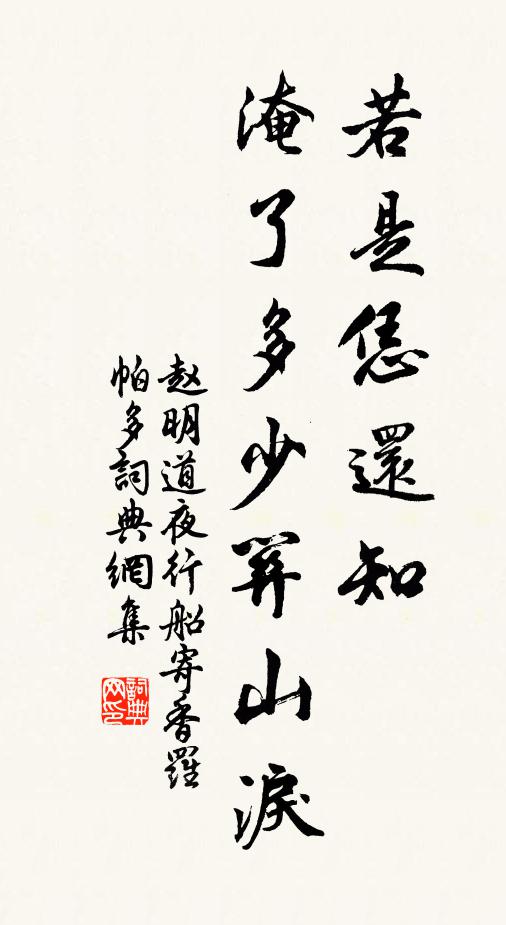 若是恁還知
淹了多少関山淚
赵明道夜行船寄香羅
帕多詞典網集
詞典
网印